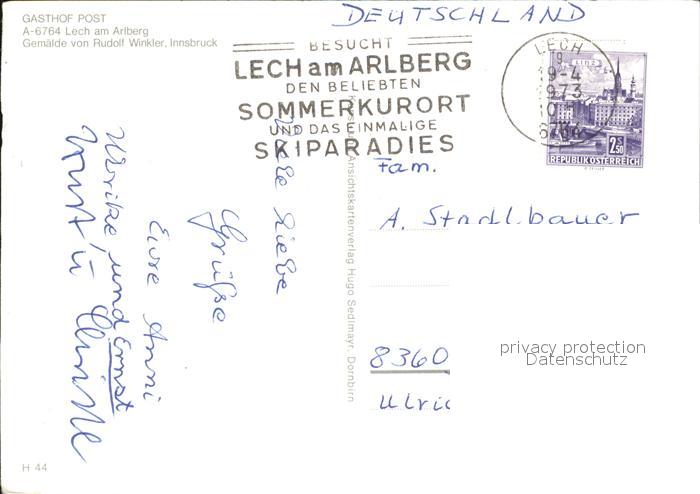 GASTHOF POST
A-6764 Lech am Arlberg
Gemälde von Rudolf Winkler, Innsbruck
DEUTSCHLAND
BESUCHT
LECH am ARLBERG
DEN BELIEBTEN
SOMMERKURORT
UND DAS EINMALIGE
SKIPARADIES
LECH
19-4
1973
6764
LINZ
2.50 S
REPUBLIK ÖSTERREICH
Viele liebe
Grüße
Eure Anni
Ulrike, und Ernst
Kurt u. Christl
Ansichtskartenverlag Hugo Sedlmayr, Dornbirn
Fam.
A. Stadlbauer
8360
Ulric
privacy protection
Datenschutz
H 44